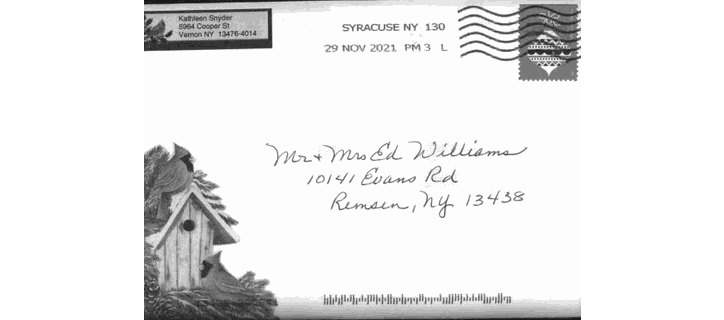 Kathleen Snyder
5964 Cooper St
Vernon NY 13476-4014
SYRACUSE NY 130
29 NOV 2021 PM 3 L
Mr + Mrs Ed Williams
10141 Evans Rd
Remsen, NY 13438